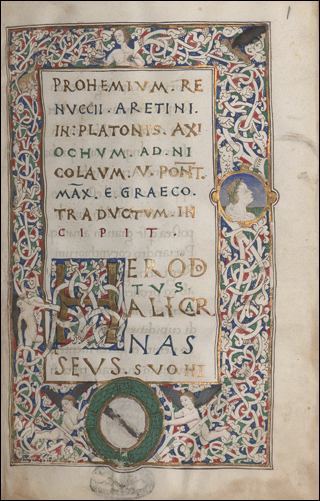 1
PROHEMIUM · RE
NUCCII · ARETINI ·
IN · PLATONIS · AXI
OCHUM · AD · NI
COLAUM · V · PONT̅ ·
MAX̅ · E · GRAECO ·
TRADUCTUM · IN
CIPIT ·
HEROD
TUS
ALICAR
NAS
SEUS · SUO HI